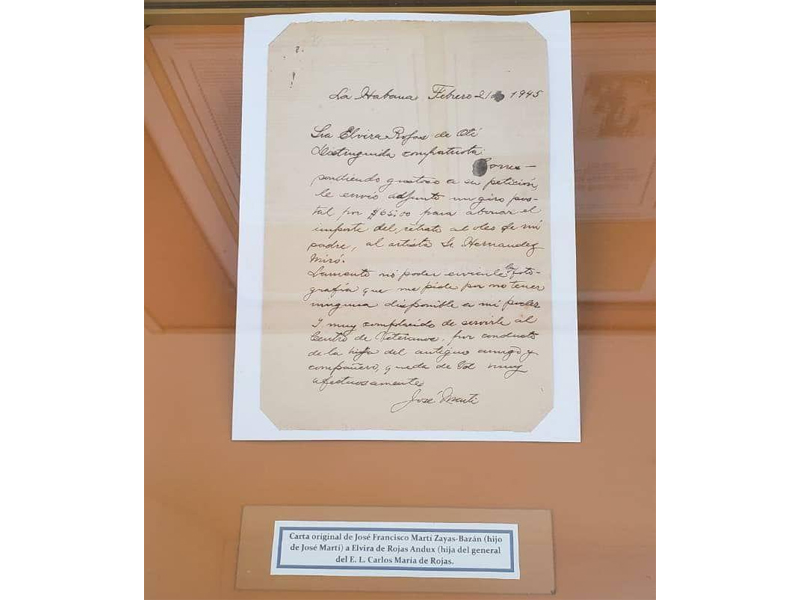 La Habana Febrero 2 1945
Sra Elvira Rojas de Oti
Distinguida compatriota.
Corres-
pondiendo gustoso a su petición,
le envío adjunto un giro pos-
tal por $65.00 para abonar el
importe del, retrato al oleo de mi
padre, al artista Sr Hernandez
Miró.
Lamento no poder enviarle la foto-
grafía que me pide por no tener
ninguna disponible a mi poder
Y muy complacido de servirle al
Centro de Veteranos, por conducto
de la hija del antiguo amigo y
compañero, queda de Vd muy
afectuosamente
José Martí
Carta original de José Francisco Martí Zayas-Bazán (hijo
de José Martí) a Elvira de Rojas Andux (hija del general
del E. L. Carlos María de Rojas.